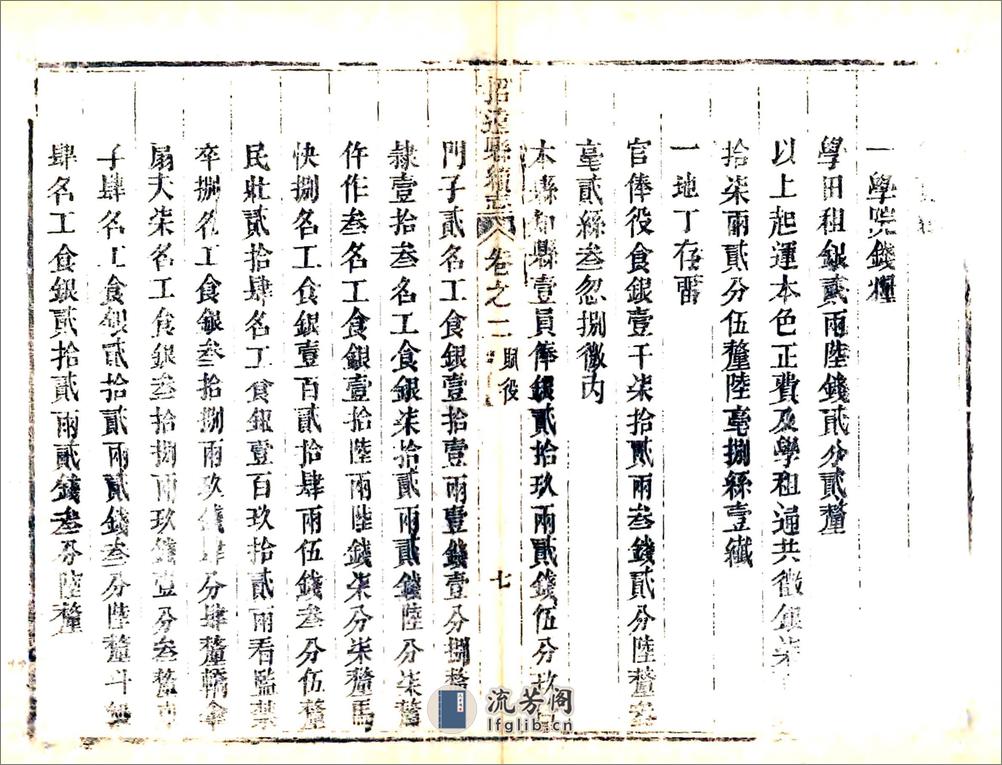 一學院錢糧
學田租銀貳兩陸錢貳分貳釐
以上起運本色正費及學租通共徵銀柒
拾柒兩貳分伍釐陸毫捌絲壹纖
一地丁存畱
官俸役食銀壹千柒拾貳兩叁錢貳分陸釐
毫貳絲叁忽捌微內
本縣知縣壹員俸銀貳拾玖兩貳錢伍分玖
招遠縣續志 卷之二 賦役 七
門子貳名工食銀壹拾壹兩壹錢壹分捌釐
隸壹拾叁名工食銀柒拾貳兩貳錢陸分柒釐
仵作叁名工食銀壹拾陸兩陸錢柒分柒釐馬
快捌名工食銀壹百貳拾肆兩伍錢叁分伍釐
民壯貳拾肆名工食銀壹百玖拾貳兩看監禁
卒捌名工食銀叁拾捌兩玖錢肆分肆釐轎傘
扇夫柒名工食銀叁拾捌兩玖錢壹分叁釐
子肆名工食銀貳拾貳兩貳錢叁分陸釐斗級
肆名工食銀貳拾貳兩貳錢叁分陸釐
流芳阁
lfglib.cn